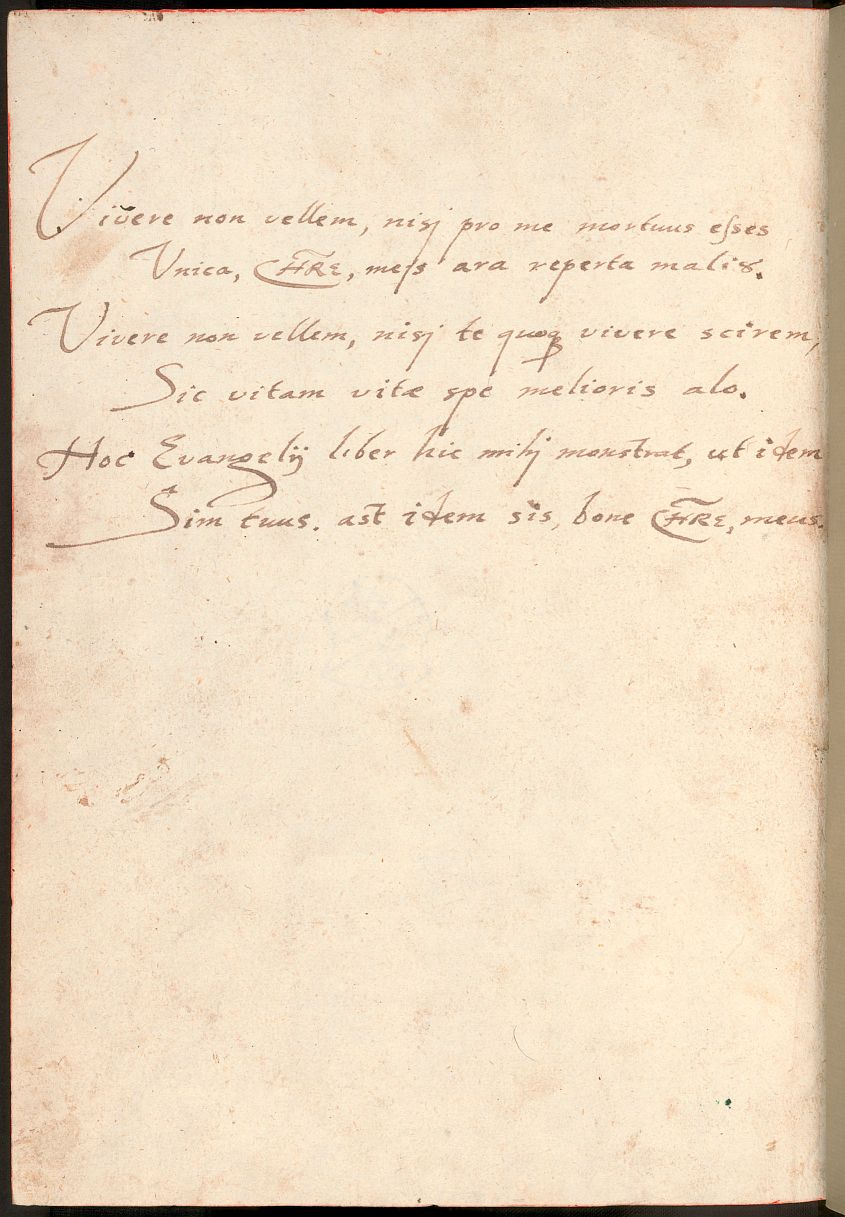 Vivere non vellem, nisj pro me mortuus eſses
Vnica, CHRE, mejs ara reperta malis.
Vivere non vellem, nisj te quoq vivere scirem,
Sic vitam vitæ spe melioris alo.
Hoc Evangelij liber hic mihj monstrat, ut idem
Sim tuus. ast idem sis, bone CHRE, meus.